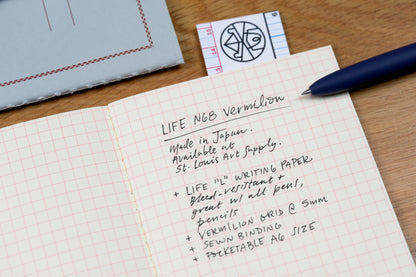 LIFE N68 Vermilion
Made in Japan.
Available at
St. Louis Art Supply.
+ LIFE "L" WRITING PAPER
Bleed-resistant +
great w/ all pens,
pencils
+ VERMILION GRID @ 5mm
+ SEWN BINDING
+ POCKETABLE A6 SIZE